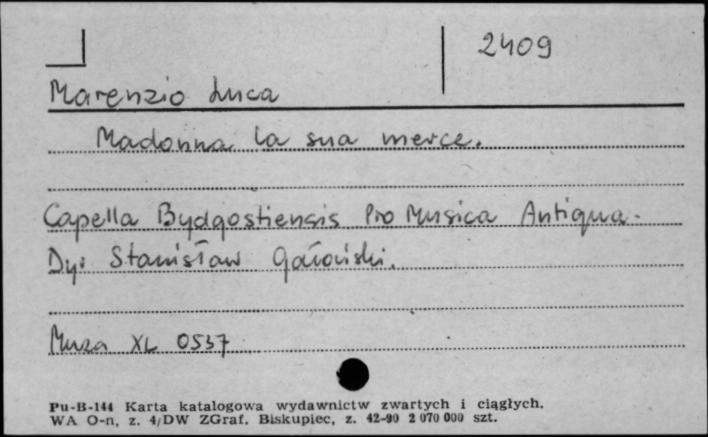 2409
Marenzio Luca
Madonna la sua merce.
Capella Bydgostiensis Pro Musica Antiqua.
Dyr Stanisław Gałoński.
Muza XL 0537
Pu-B-144 Karta katalogowa wydawnictw zwartych i ciągłych.
WA O-n, z. 4/DW ZGraf. Biskupiec, z. 42-90 2 070 000 szt.